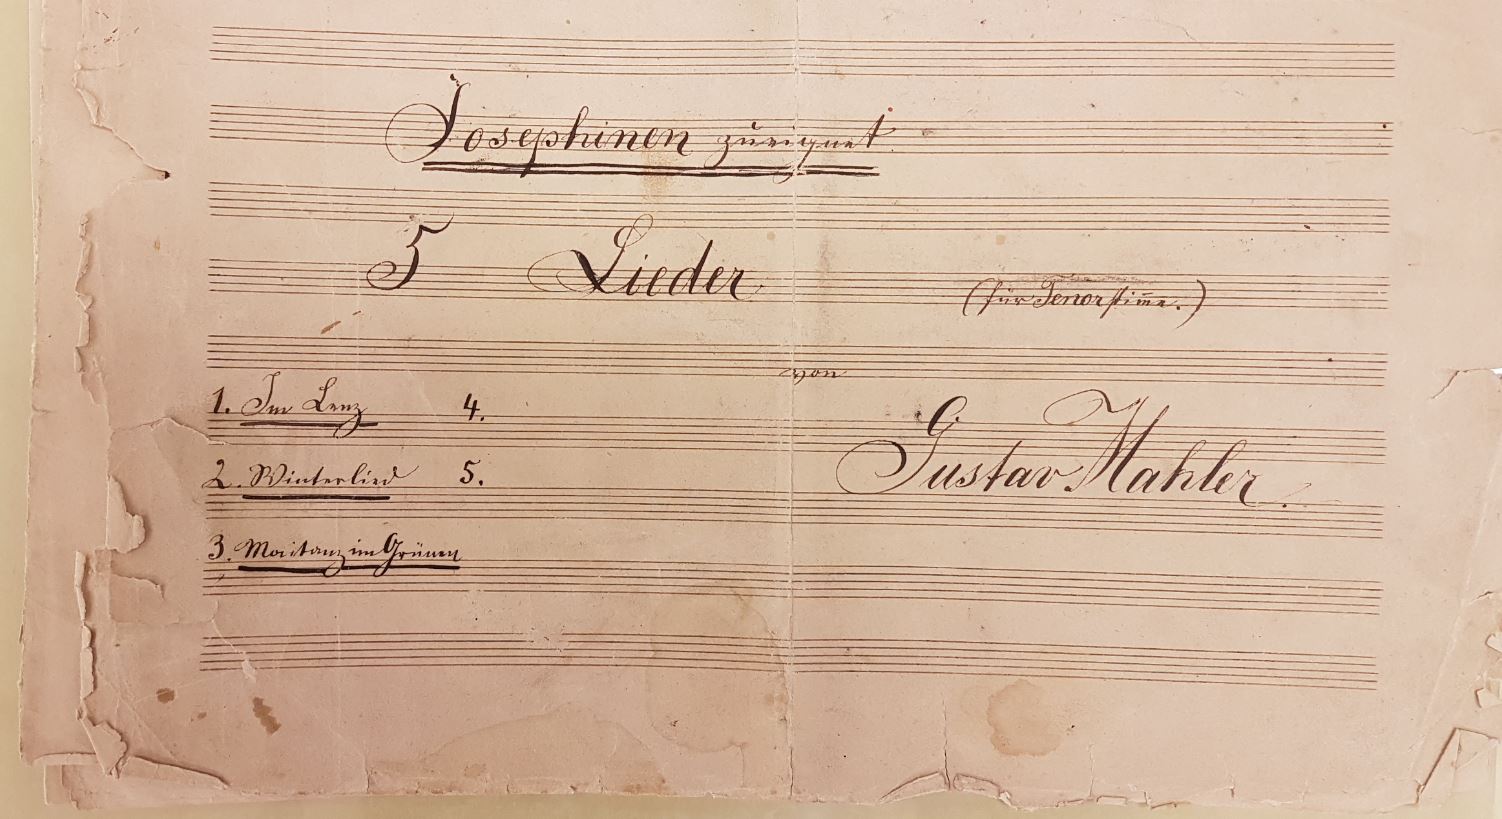 Josephinen zueignet.
5 Lieder
(für Tenorstim̅e.)
von
Gustav Mahler.
1. Im Lenz
4.
2. Winterlied
5.
3. Maitanz im Grünen